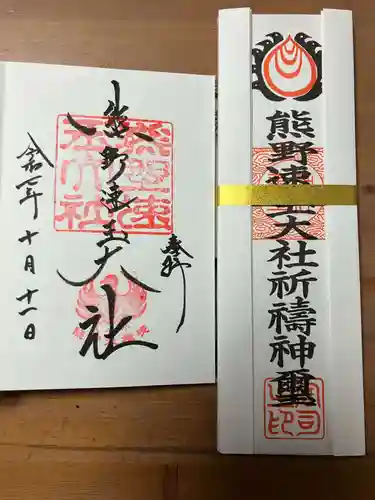 奉拝
熊野速玉大社
令和二年十月十一日
熊野速玉大社
熊野速玉大社祈禱神璽